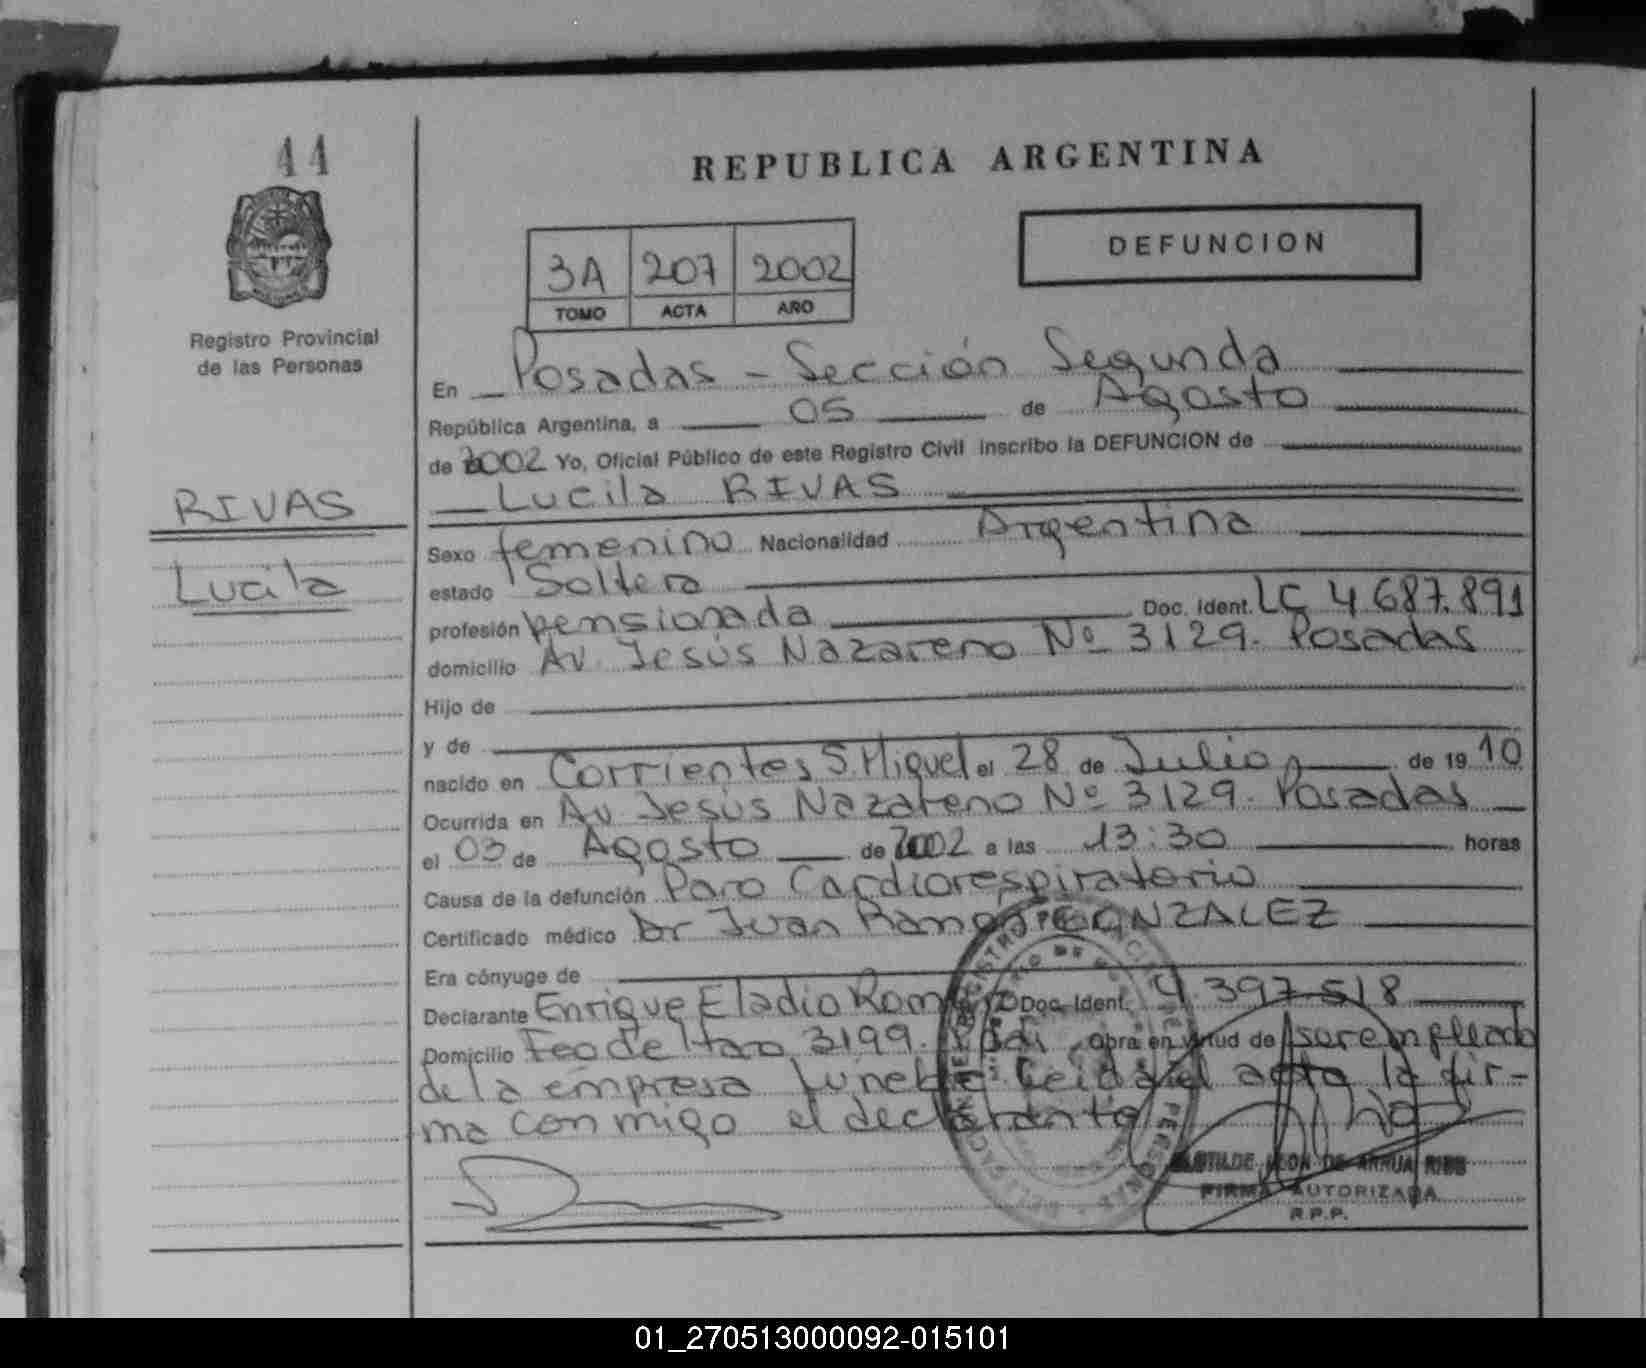 44
REPUBLICA ARGENTINA
DEFUNCION
3A 207 2002
TOMO ACTA AÑO
Registro Provincial
de las Personas
En Posadas - Sección Segunda
República Argentina, a 05 de Agosto
de 2002 Yo, Oficial Público de este Registro Civil inscribo la DEFUNCION de
Lucila RIVAS
RIVAS
Lucila
Sexo femenino Nacionalidad Argentina
estado Soltera
profesión pensionada Doc. Ident. LC 4687.891
domicilio Av. Jesús Nazareno Nº 3129. Posadas
Hijo de
y de
nacido en Corrientes S. Miguel el 28 de Julio de 19 10
Ocurrida en Av. Jesús Nazareno Nº 3129. Posadas
el 03 de Agosto de 2002 a las 13:30 horas
Causa de la defunción Paro Cardiorespiratorio
Certificado médico Dr Juan Ramon GONZALEZ
Era cónyuge de
Declarante Enrique Eladio Doc. Ident. 4.397.518
Domicilio 3199. obra en virtud de ser empleado
de la empresa fúnebre. Leida el acta la fir-
ma conmigo el declarante
LEON DE ARRUA
FIRMA AUTORIZADA
R.P.P.
01_270513000092-015101